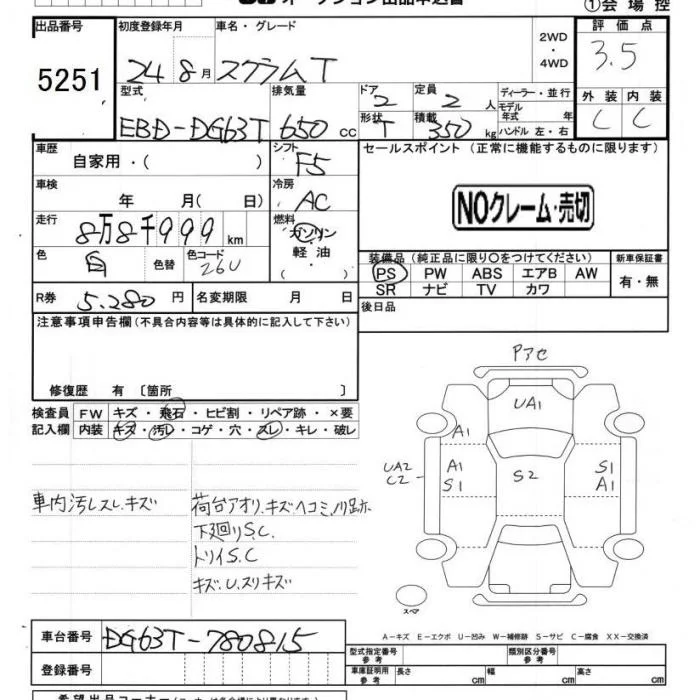 ①会場控
出品番号 初度登録年月 車名・グレード 2WD 評価点
5251 24 8月 スクラムT ・4WD 3.5
型式 排気量 ドア 2 定員 2人 ディーラー・並行 外装 内装
EBD-DG63T 650cc 形状 T 積載 350kg モデル年式 年 C C
ハンドル 左・右
車歴 自家用・( ) シフト F5 セールスポイント(正常に機能するものに限ります)
車検 年 月(日) 冷房 AC
NOクレーム・売切
走行 8万8千999km 燃料 ガソリン
軽油
・( )
色 白 色替 色コード 26U 装備品(純正品に限り○をつけてください) 新車保証書
PS PW ABS エアB AW 有・無
SR ナビ TV カワ
R券 5.280円 名変期限 月 日 後日品
注意事項申告欄(不具合内容等は具体的に記入して下さい)
修復歴 有 〔箇所 〕
検査員 FW キズ・飛石・ヒビ割・リペア跡・×要
記入欄 内装 キズ・汚レ・コゲ・穴・スレ・キレ・破レ
車内汚レスレ.キズ
荷台アオリ.キズヘコミ.ノリ跡
下廻りS.C
トリイS.C
キズ.U.スリキズ
Pアセ
UA1
A1
UA2
C2
A1
S1
S2
S1
A1
スペア
A-キズ E-エクボ U-凹み W-補修跡 S-サビ C-腐食 XX-交換済
車台番号 DG63T-780815
登録番号
型式指定番号 参考 類別区分番号 参考
車庫証明用 参考 長さ cm 幅 cm 高さ cm